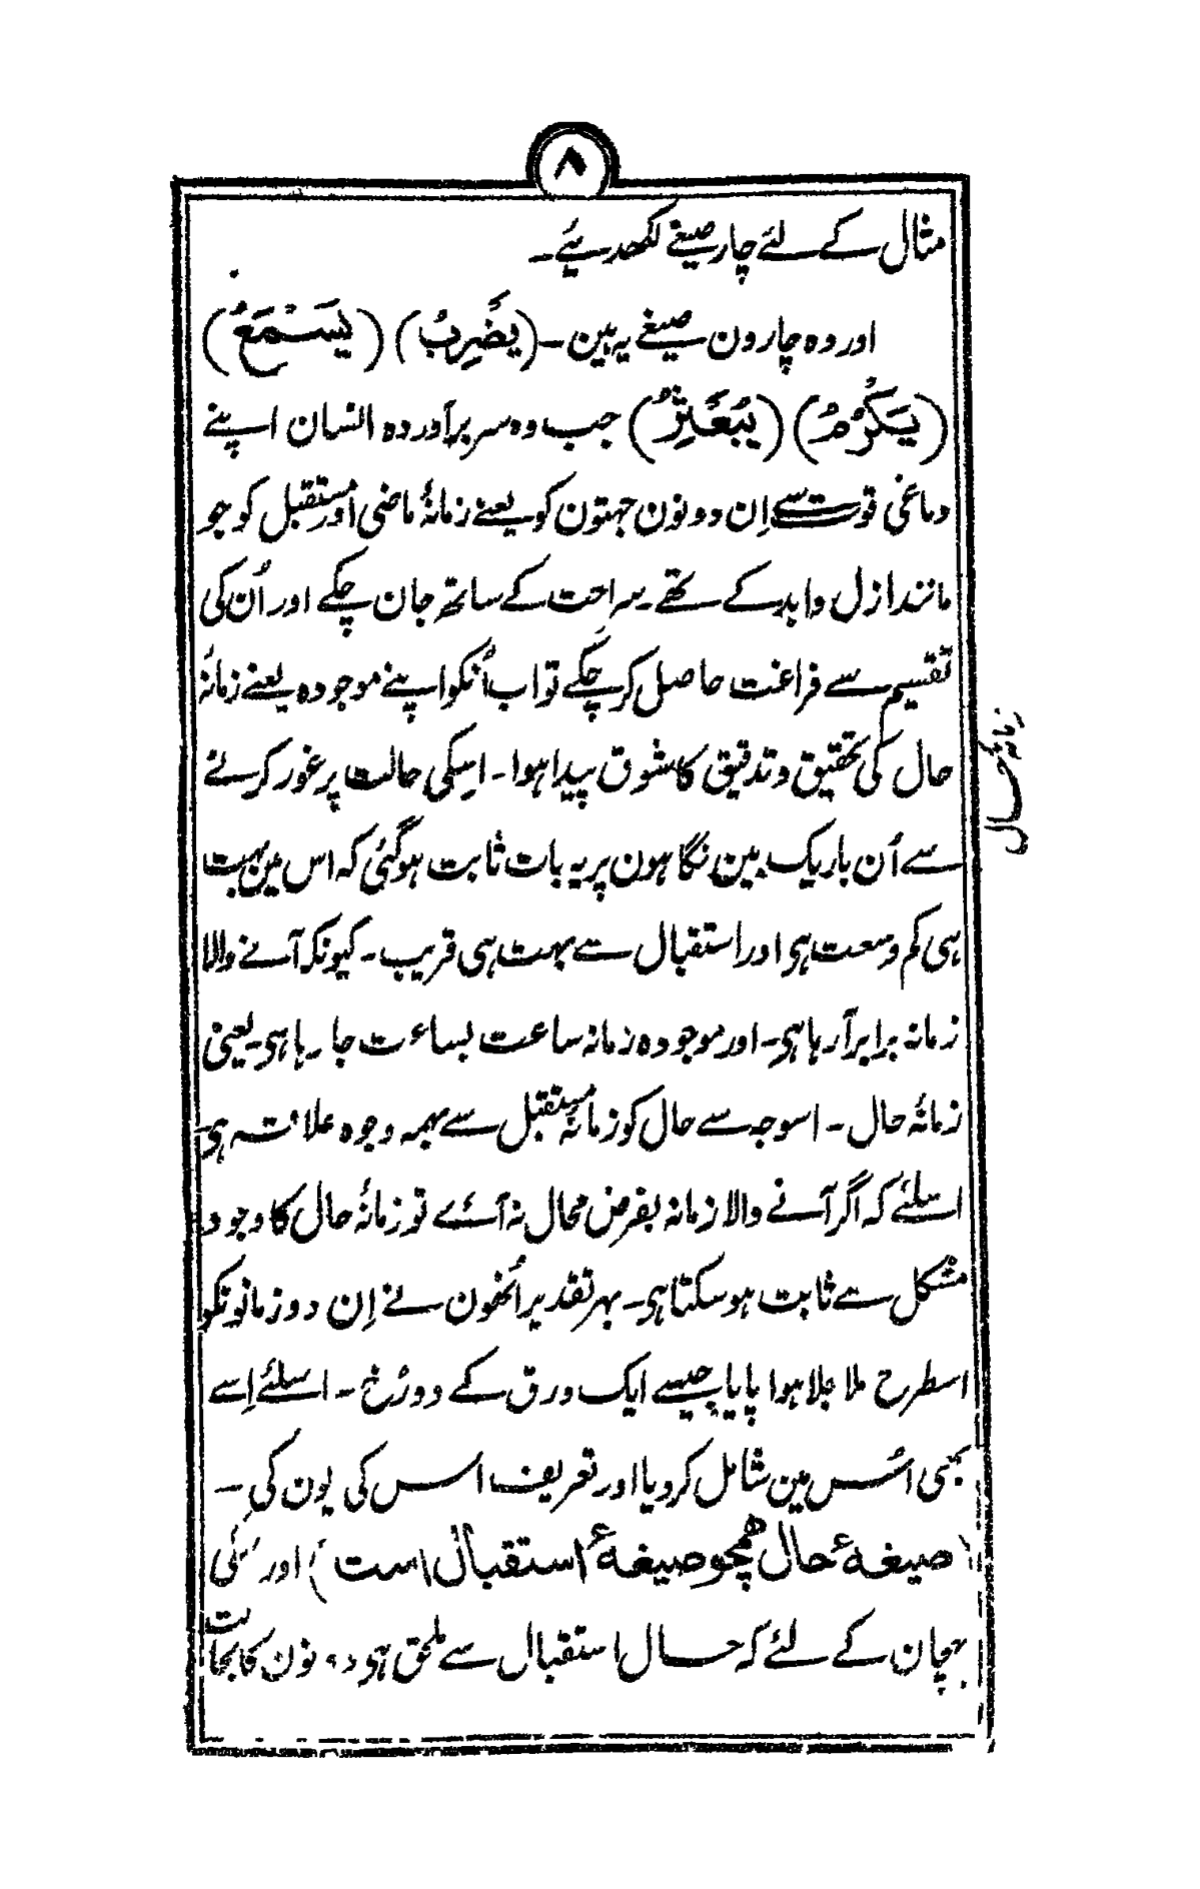 ۸
مثال کے لئے چار صیغے لکھدیئے۔
اور وہ چارون صیغے یہ ہین۔ (یَضْرِبُ) (یَسْمَعُ)
(یَکْرُمُ) (یُبَعْثِرُ) جب وہ سر برآوردہ انسان اپنے
دماغی قوت سے اِن دونون جہتون کو یعنے زمانۂ ماضی اور مستقبل کو جو
مانند ازل و ابد کے تھے۔ سراحت کے ساتھ جان چکے اور اُن کی
تقسیم سے فراغت حاصل کر چکے تو اب اُنکو اپنے موجودہ یعنے زمانۂ
زمانۂ حال
حال کی تحقیق و تدقیق کا شوق پیدا ہوا۔ اسکی حالت پر غور کرنے
سے اُن باریک بین نگاہون پر یہ بات ثابت ہوگئی کہ اس مین بہت
ہی کم وسعت ہی اور استقبال سے بہت ہی قریب۔ کیونکہ آنے والا
زمانہ برابر آرہا ہی۔ اور موجودہ زمانہ ساعت بساعت جا رہا ہی۔ یعنی
زمانۂ حال۔ اسوجہ سے حال کو زمانۂ مستقبل سے بہمہ وجوہ علاقہ ہی
اسلئے کہ اگر آنے والا زمانہ بفرض محال نہ آئے تو زمانۂ حال کا وجود
مشکل سے ثابت ہو سکتا ہی۔ بہر تقدیر اُنھون نے اِن دو زمانونکو
اسطرح ملا جلا ہوا پایا جیسے ایک ورق کے دو رُخ۔ اسلئے اِسے
بھی اُس مین شامل کر دیا اور تعریف اُس کی یون کی۔
(صیغۂ حال همچو صیغۂ استقبال است) اور اُسکی
پہچان کے لئے کہ حال استقبال سے ملحق ہی دہ نون کا بحالت